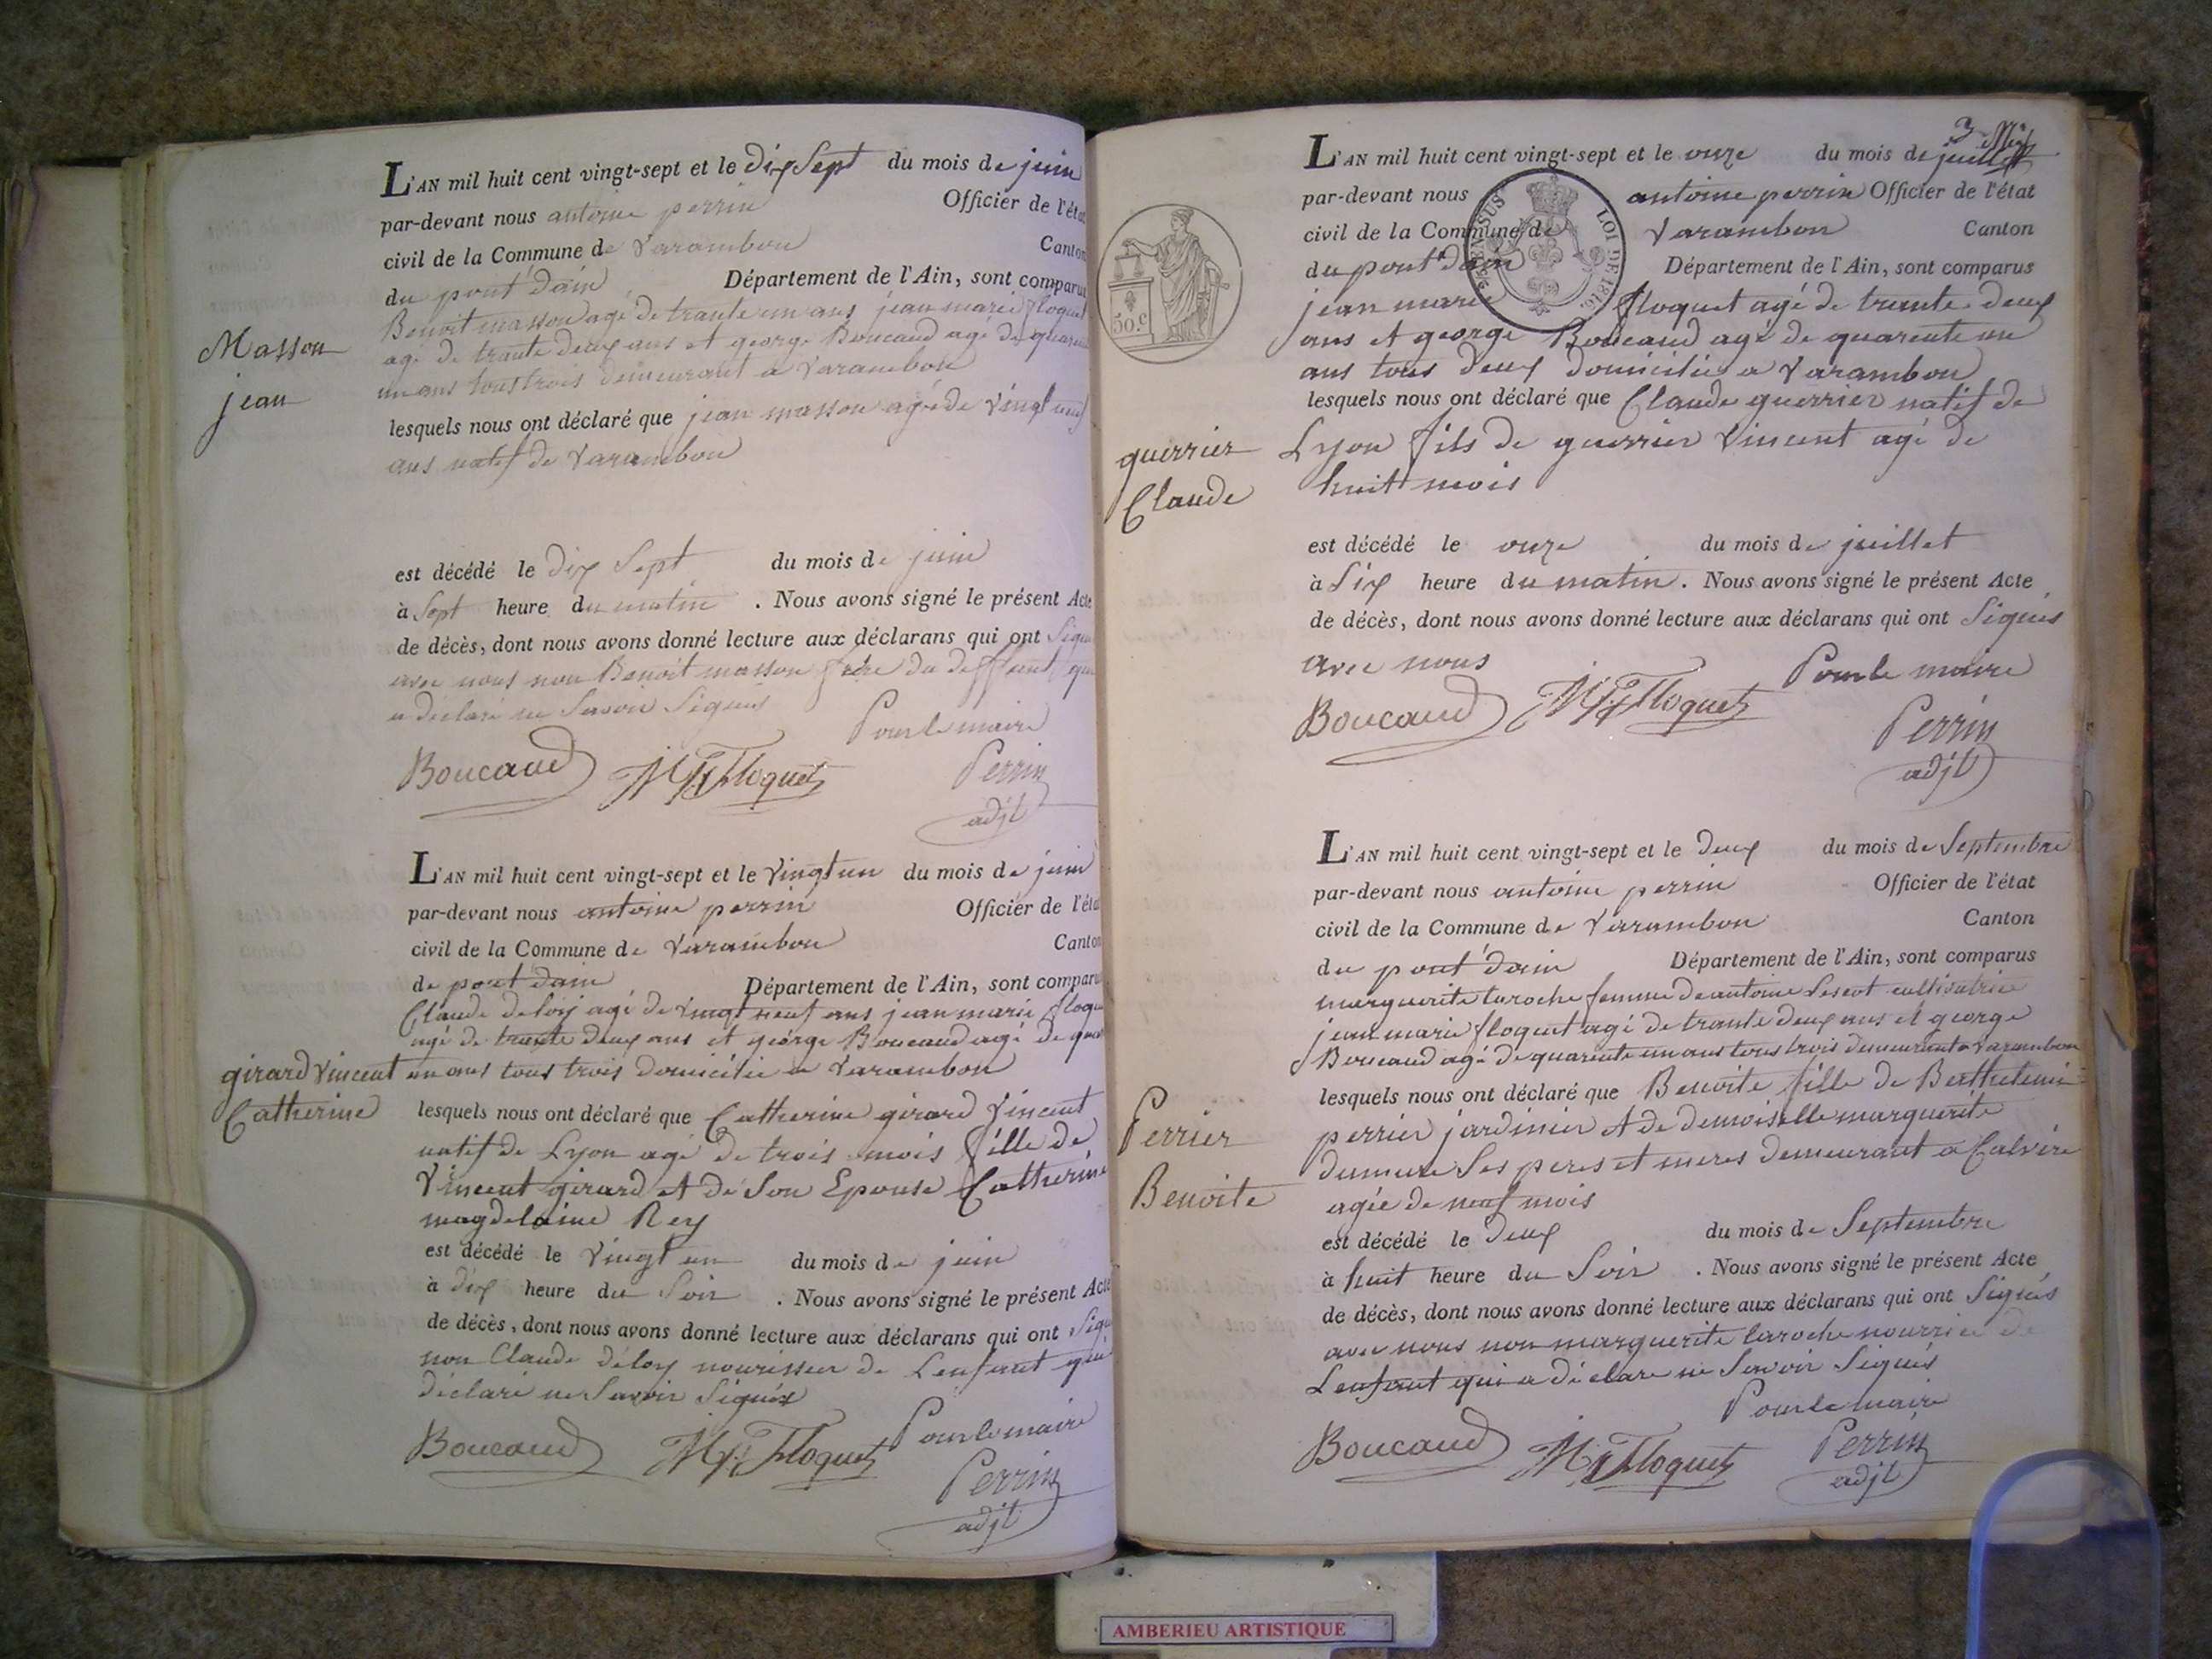 L'AN mil huit cent vingt-sept et le dix sept du mois de juin
par-devant nous antoine perrin Officier de l'éta
civil de la Commune de Varambon Canton
du pont d'ain Département de l'Ain, sont comparus
Benoit masson agé de trante un ans jean marie floquet
agé de trante deux ans et george Boucaud agé de quarante
un ans tous trois demeurant a Varambon
Masson
jean
lesquels nous ont déclaré que jean masson agé de vingt neuf
ans natif de Varambon
est décédé le dix Sept du mois de juin
à Sept heure du matin . Nous avons signé le présent Acte
de décès, dont nous avons donné lecture aux déclarans qui ont Signé
avec nous non Benoit masson frère du deffunt qui
a declaré ne Savoir Signés
Pour le maire
Boucaud JM Floquet Perrin
adjt
L'AN mil huit cent vingt-sept et le vingt un du mois de juin
par-devant nous antoine perrin Officier de l'éta
civil de la Commune de Varambon Canton
de pont d'ain Département de l'Ain, sont comparu
Claude deloy agé de vingt neuf ans jean marie floque
agé de trante deux ans et géorge Boucaud agé de quar
girard Vincent
Catherine
un ans tous trois domicilié a Varambon
lesquels nous ont déclaré que Catherine girard Vincent
natif de Lyon agé de trois mois fille de
Vincent girard et de Son Epouse Catherine
magdelaine Rey
est décédé le vingt un du mois de juin
à dix heure du Soir . Nous avons signé le présent Acte
de décès, dont nous avons donné lecture aux déclarans qui ont Signé
non Claude déloy nourisseur de Lenfant qui
déclaré ne Savoir Signés
Pour le maire
Boucaud JM Floquet Perrin
adjt
3
L'AN mil huit cent vingt-sept et le onze du mois de juillet
par-devant nous antoine perrin Officier de l'état
civil de la Commune de Varambon Canton
du pont d'ain Département de l'Ain, sont comparus
LOI DE 1816.
50.c
jean marie floquet agé de trante deux
ans et george Boucaud agé de quarente un
ans tous deux domicilié a Varambon
lesquels nous ont déclaré que Claude guerrier natif de
guerrier
Claude
Lyon fils de guerrier Vincent agé de
huit mois
est décédé le onze du mois de juillet
à Six heure du matin . Nous avons signé le présent Acte
de décès, dont nous avons donné lecture aux déclarans qui ont Signés
avec nous Pour le maire
Boucaud JM Floquet Perrin
adjt
L'AN mil huit cent vingt-sept et le deux du mois de Septembre
par-devant nous antoine perrin Officier de l'état
civil de la Commune de Varambon Canton
du pont d'ain Département de l'Ain, sont comparus
marguerite laroche femme de antoine Lescot cultivatrice
jean marie floquet agé de trante deux ans et george
Boucaud agé de quarente un ans tous trois demeurant a Varambon
Perrier
Benoite
lesquels nous ont déclaré que Benoite fille de Berthelemi
perrier jardinier et de demoiselle marguerite
dumure Ses peres et meres demeurant a Calvire
agée de neuf mois
est décédé le deux du mois de Septembre
à huit heure du Soir . Nous avons signé le présent Acte
de décès, dont nous avons donné lecture aux déclarans qui ont Signés
avec nous non marguerite laroche nourrice de
Lenfant qui a déclare ne Savoir Signés
Pour le maire
Boucaud JM Floquet Perrin
adjt
AMBERIEU ARTISTIQUE